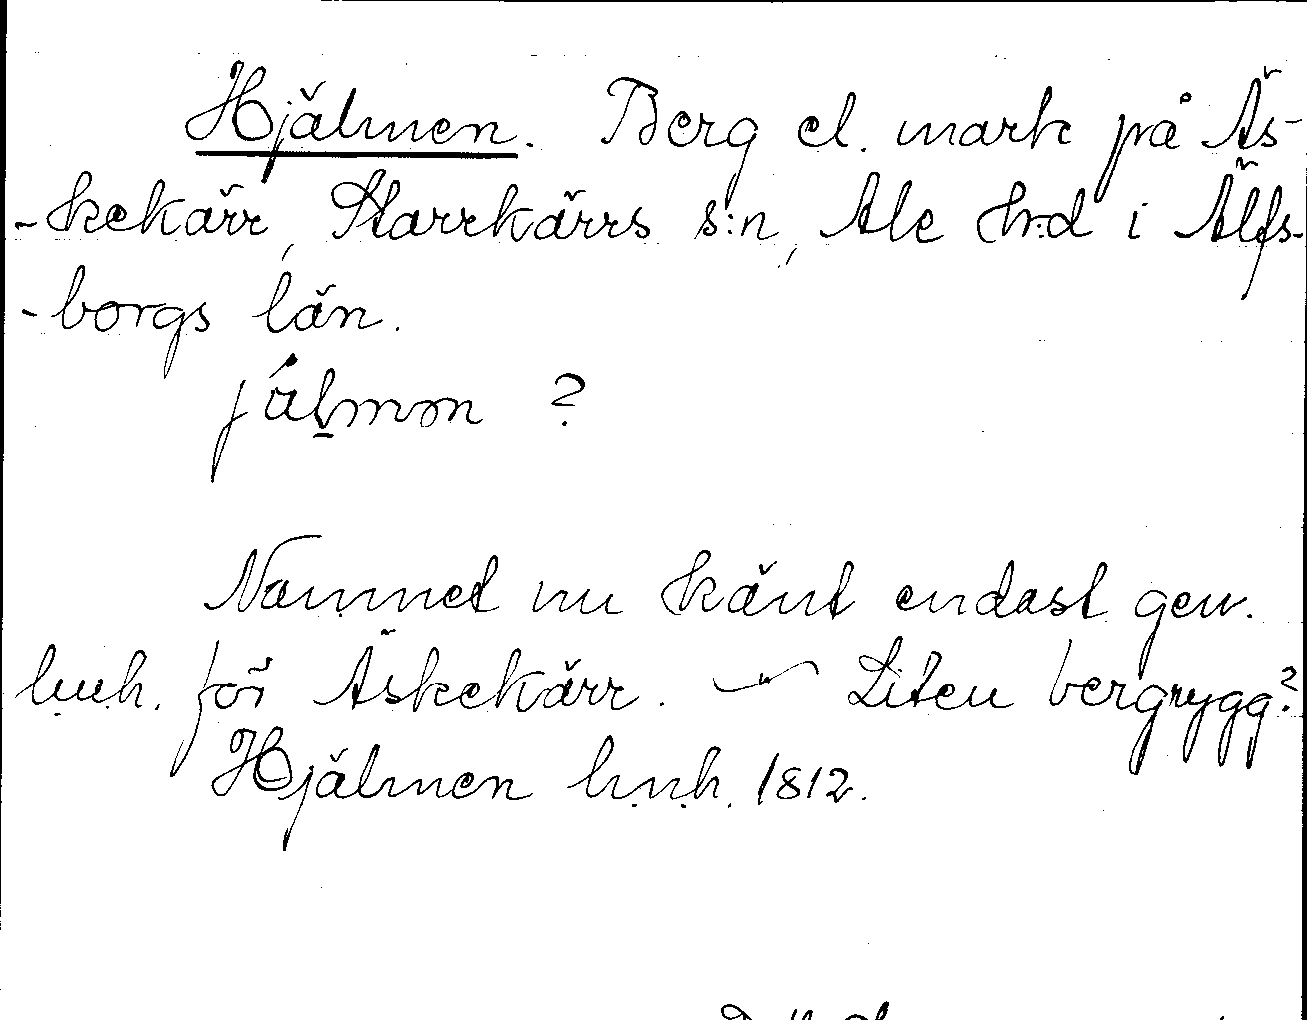 Hjälmen. Berg el. mark på Äs-
-kekärr, Starrkärrs s:n, Ale hrd i Älfs-
-borgs län.
jálmon ?
Namnet nu känt endast gen.
h.n.h. för Äskekärr. — Liten bergrygg?
Hjälmen h.n.h. 1812.